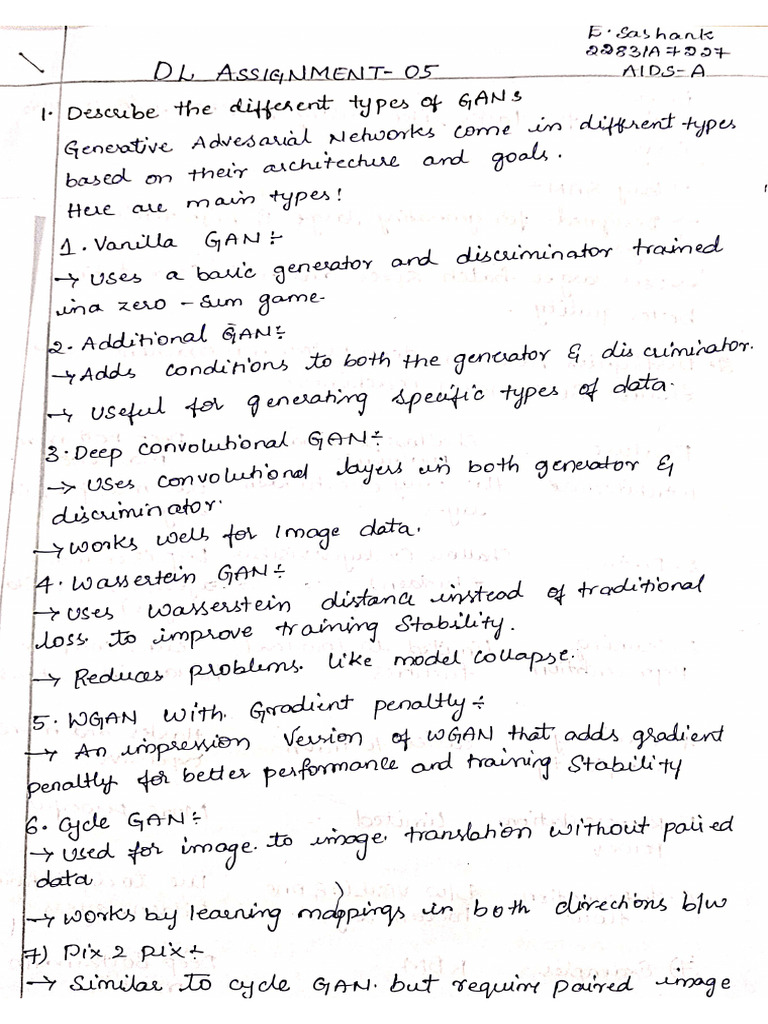 E. Sashank
22831A7227
AIDS-A
DL ASSIGNMENT-05
1. Describe the different types of GANs
Generative Advesarial Networks come in different types
based on their architecture and goals.
Here are main types!
1. Vanilla GAN:-
→ Uses a basic generator and discriminator trained
in a zero-sum game.
2. Additional GAN:-
→ Adds conditions to both the generator & discriminator.
→ Useful for generating specific types of data.
3. Deep convolutional GAN:-
→ Uses convolutional layers in both generator &
discriminator.
→ Works well for Image data.
4. Wassertein GAN:-
→ Uses Wasserstein distance instead of traditional
loss to improve training Stability.
→ Reduces problems like model collapse.
5. WGAN with Gradient penaltly:-
→ An impression Version of WGAN that adds gradient
penaltly for better performance and training Stability
6. Cycle GAN:-
→ Used for image to image translation without paired
data
→ Works by learning mappings in both directions b/w
7) Pix 2 pix:-
→ Similar to cycle GAN but require paired image